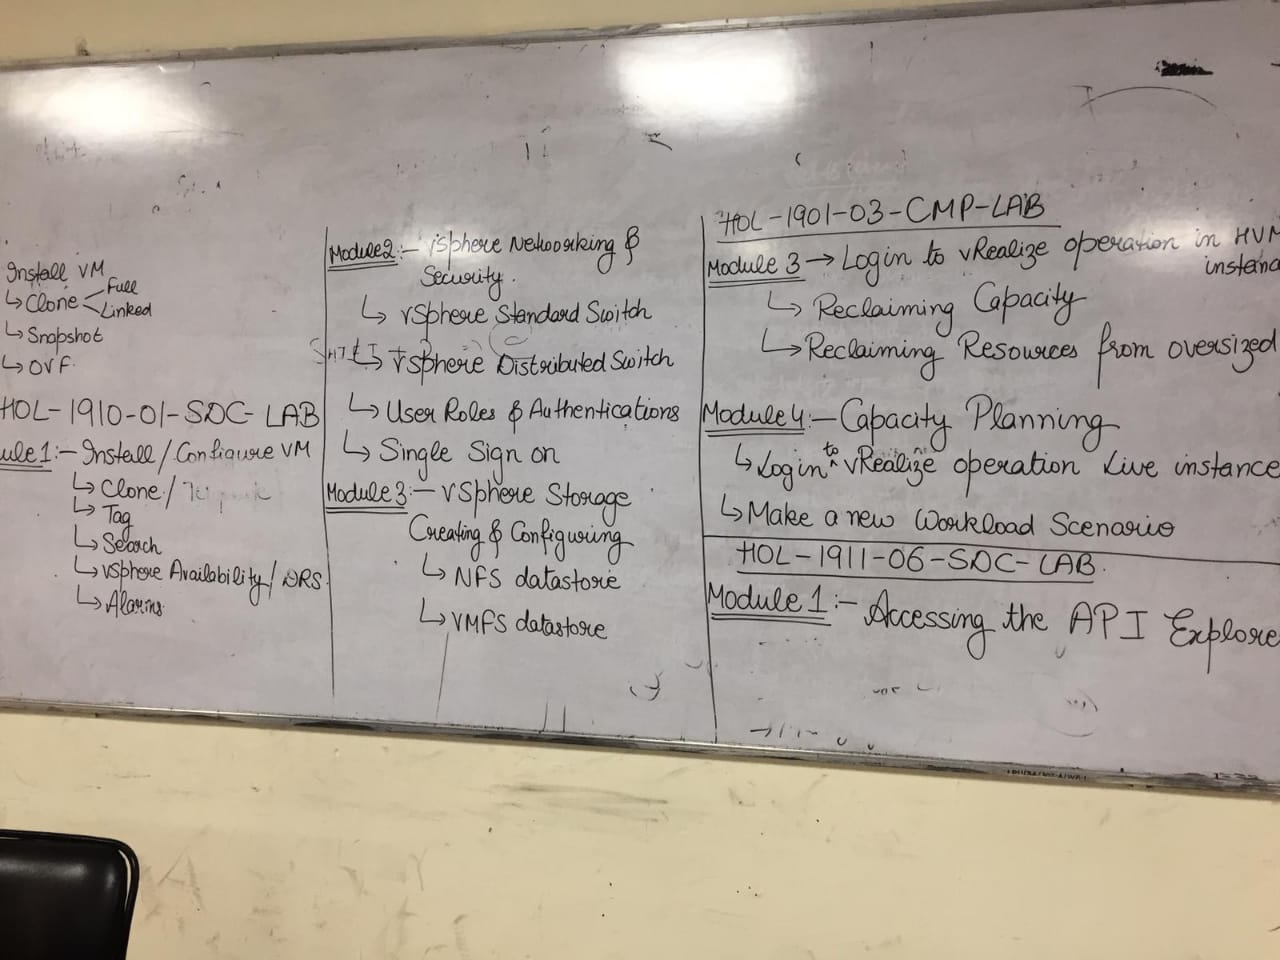 Install VM
↳ Clone < Full
Linked
↳ Snapshot
↳ OVF.
HOL-1910-01-SDC-LAB
ule 1:- Install / Configure VM
↳ Clone /
↳ Tag
↳ Search
↳ vSphere Availability / DRS
↳ Alarms
Module 2:- vSphere Networking &
Security.
↳ vSphere Standard Switch
↳ vSphere Distributed Switch
↳ User Roles & Authentications
↳ Single Sign on
Module 3:- vSphere Storage
Creating & Configuring
↳ NFS datastore
↳ VMFS datastore
HOL-1901-03-CMP-LAB
Module 3 → Login to vRealize operation in HVM
instanc
↳ Reclaiming Capacity
↳ Reclaiming Resources from oversized
Module 4:- Capacity Planning
↳ Login to vRealize operation Live instance
↳ Make a new Workload Scenario
HOL-1911-06-SDC-LAB.
Module 1:- Accessing the API Explore